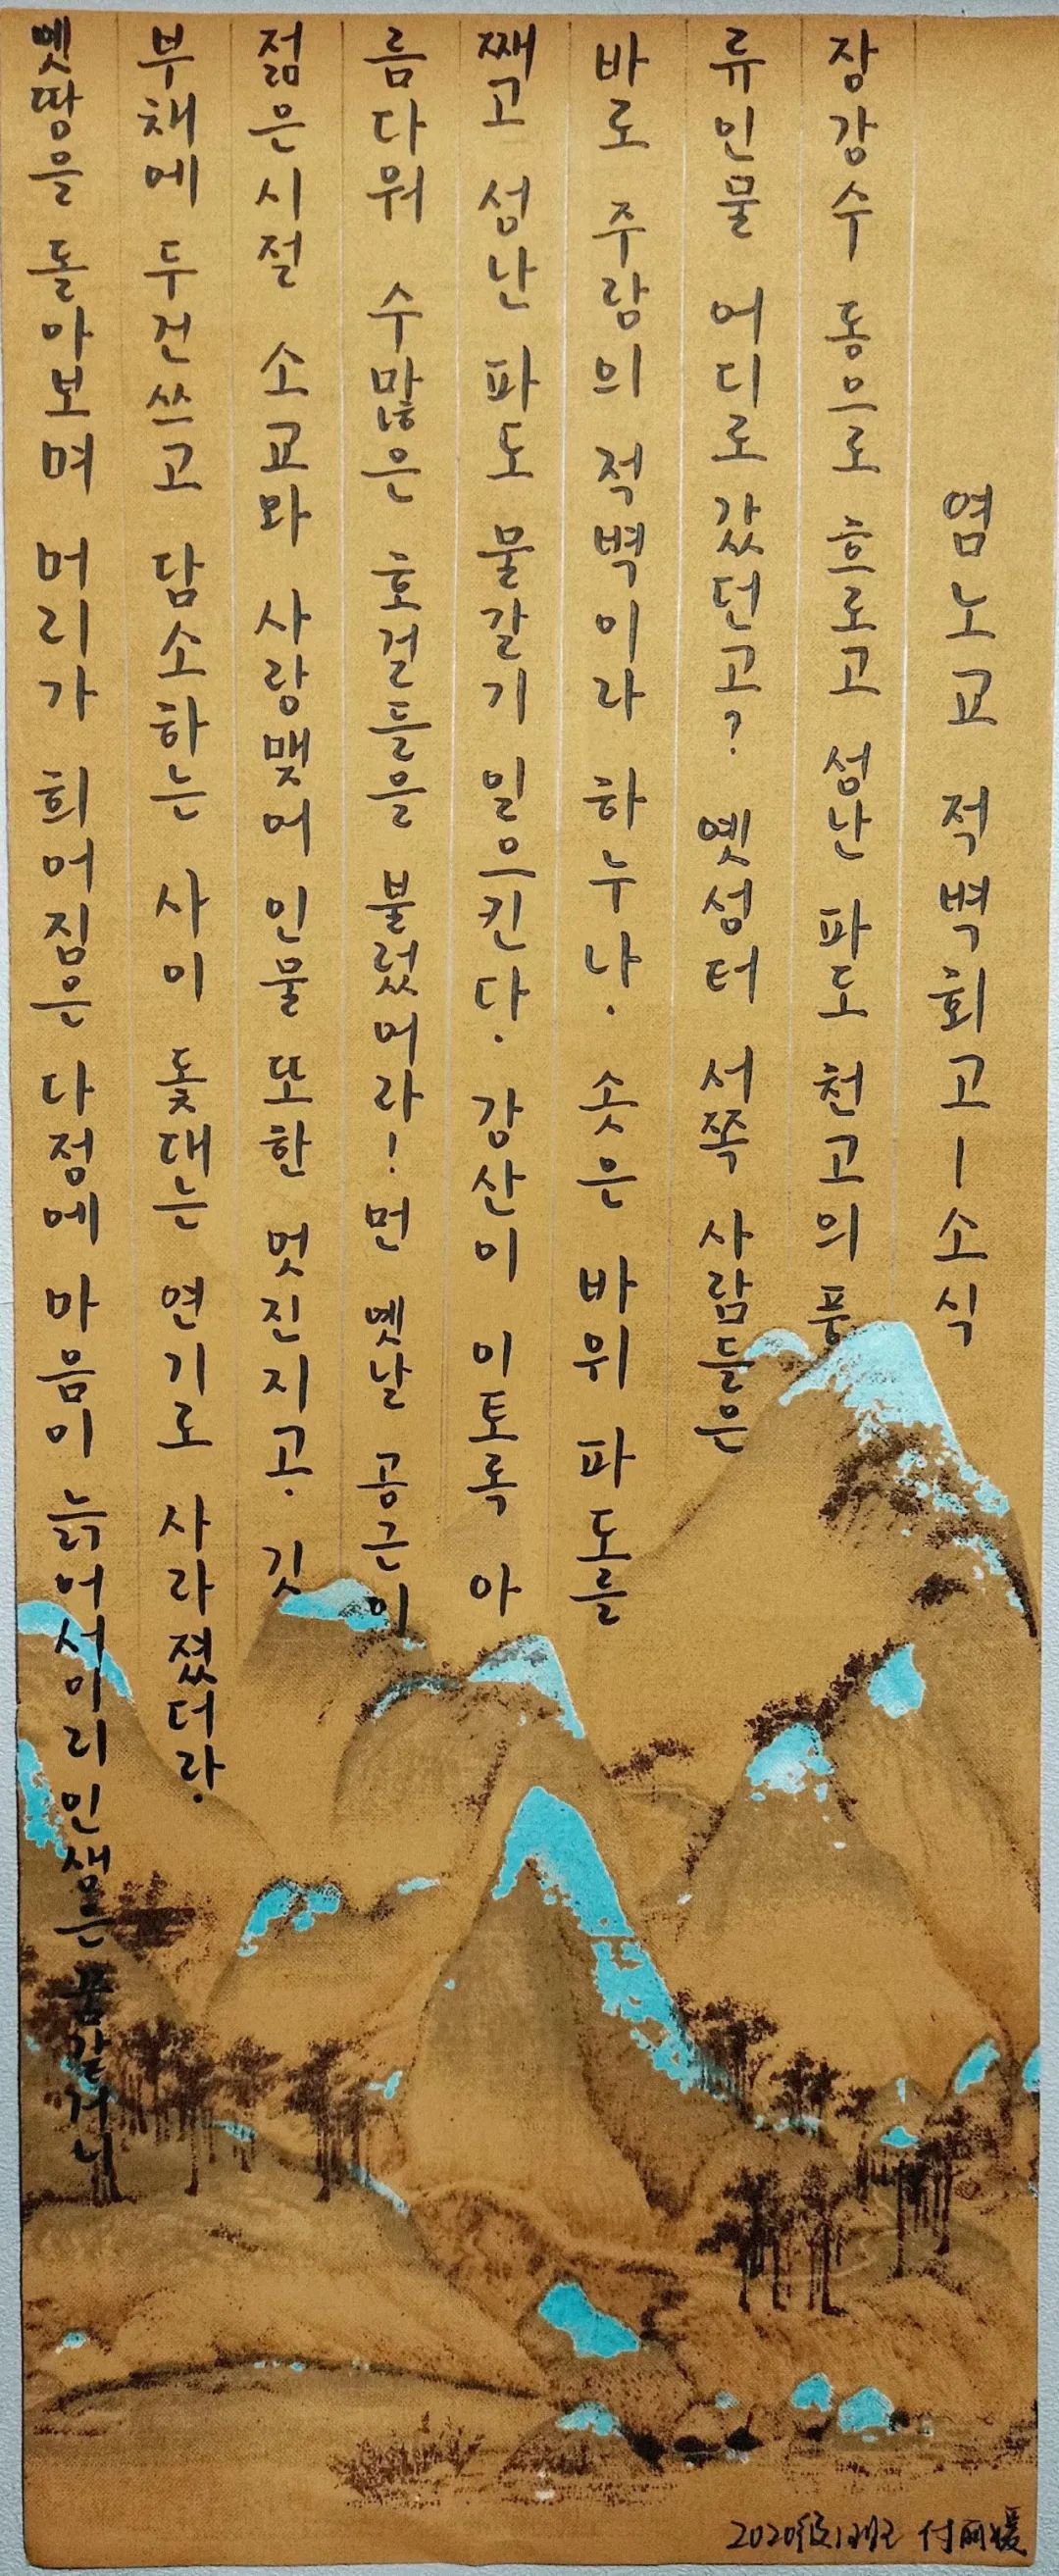 염노교 적벽회고ㅡ소식
장강수 동으로 흐르고 성난 파도 천고의 풍
류인물 어디로 갔던고? 옛성터 서쪽 사람들은
바로 주랑의 적벽이라 하누나. 솟은 바위 파도를
째고 성난 파도 물갈기 일으킨다. 강산이 이토록 아
름다워 수많은 호걸들을 불렀어라! 먼 옛날 공근이
젊은시절 소교와 사랑맺어 인물 또한 멋진지고. 깃
부채에 두건쓰고 담소하는 사이 돛대는 연기로 사라졌더라.
옛땅을 돌아보며 머리가 희어짐은 다정에 마음이 늙어서이리 인생은 꿈같거니
2020级1班 付丽媛